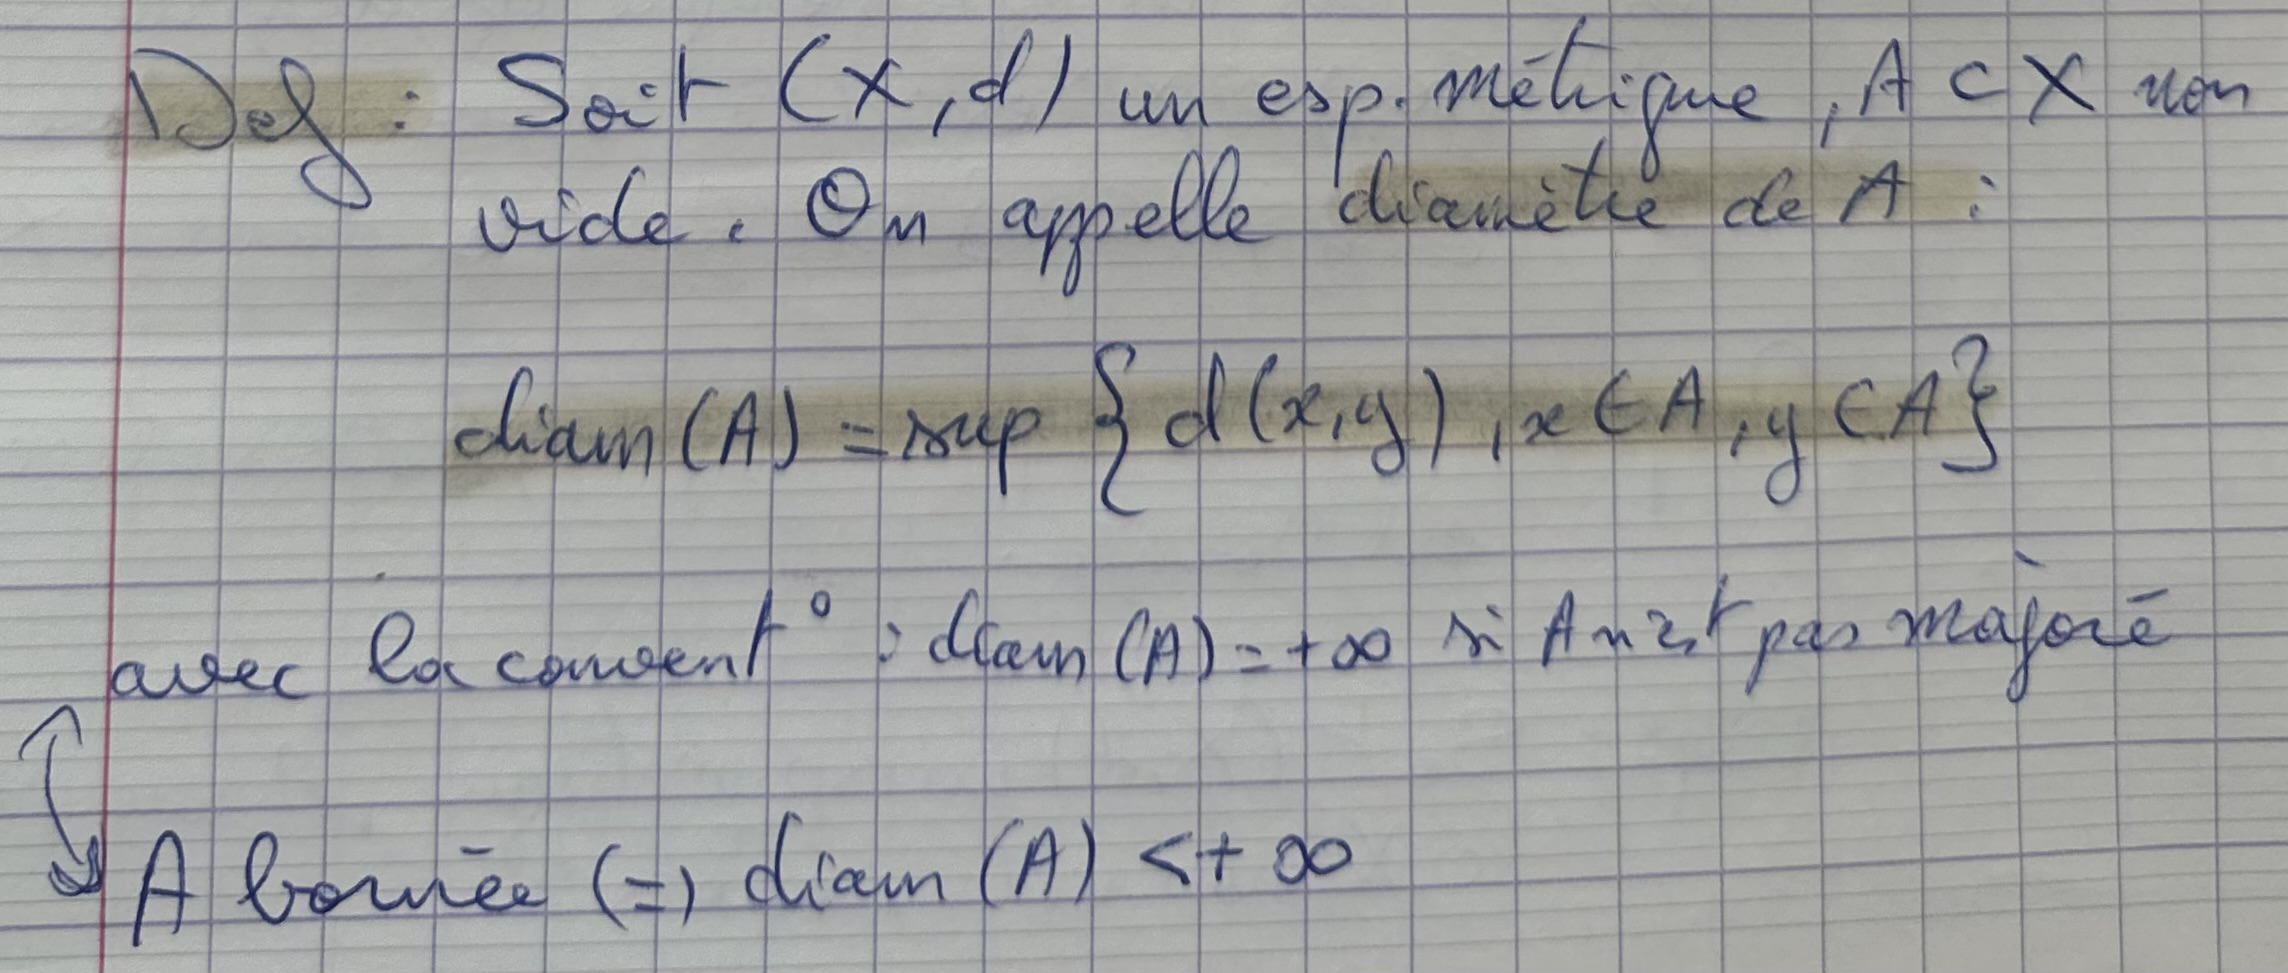 Def : Soit (X,d) un esp. métrique, A ⊂ X non
vide. On appelle diamètre de A :
diam(A) = sup { d(x,y), x ∈ A, y ∈ A }
avec la convent° : diam(A) = +∞ si A n'est pas majoré
A bornée (=) diam(A) < +∞